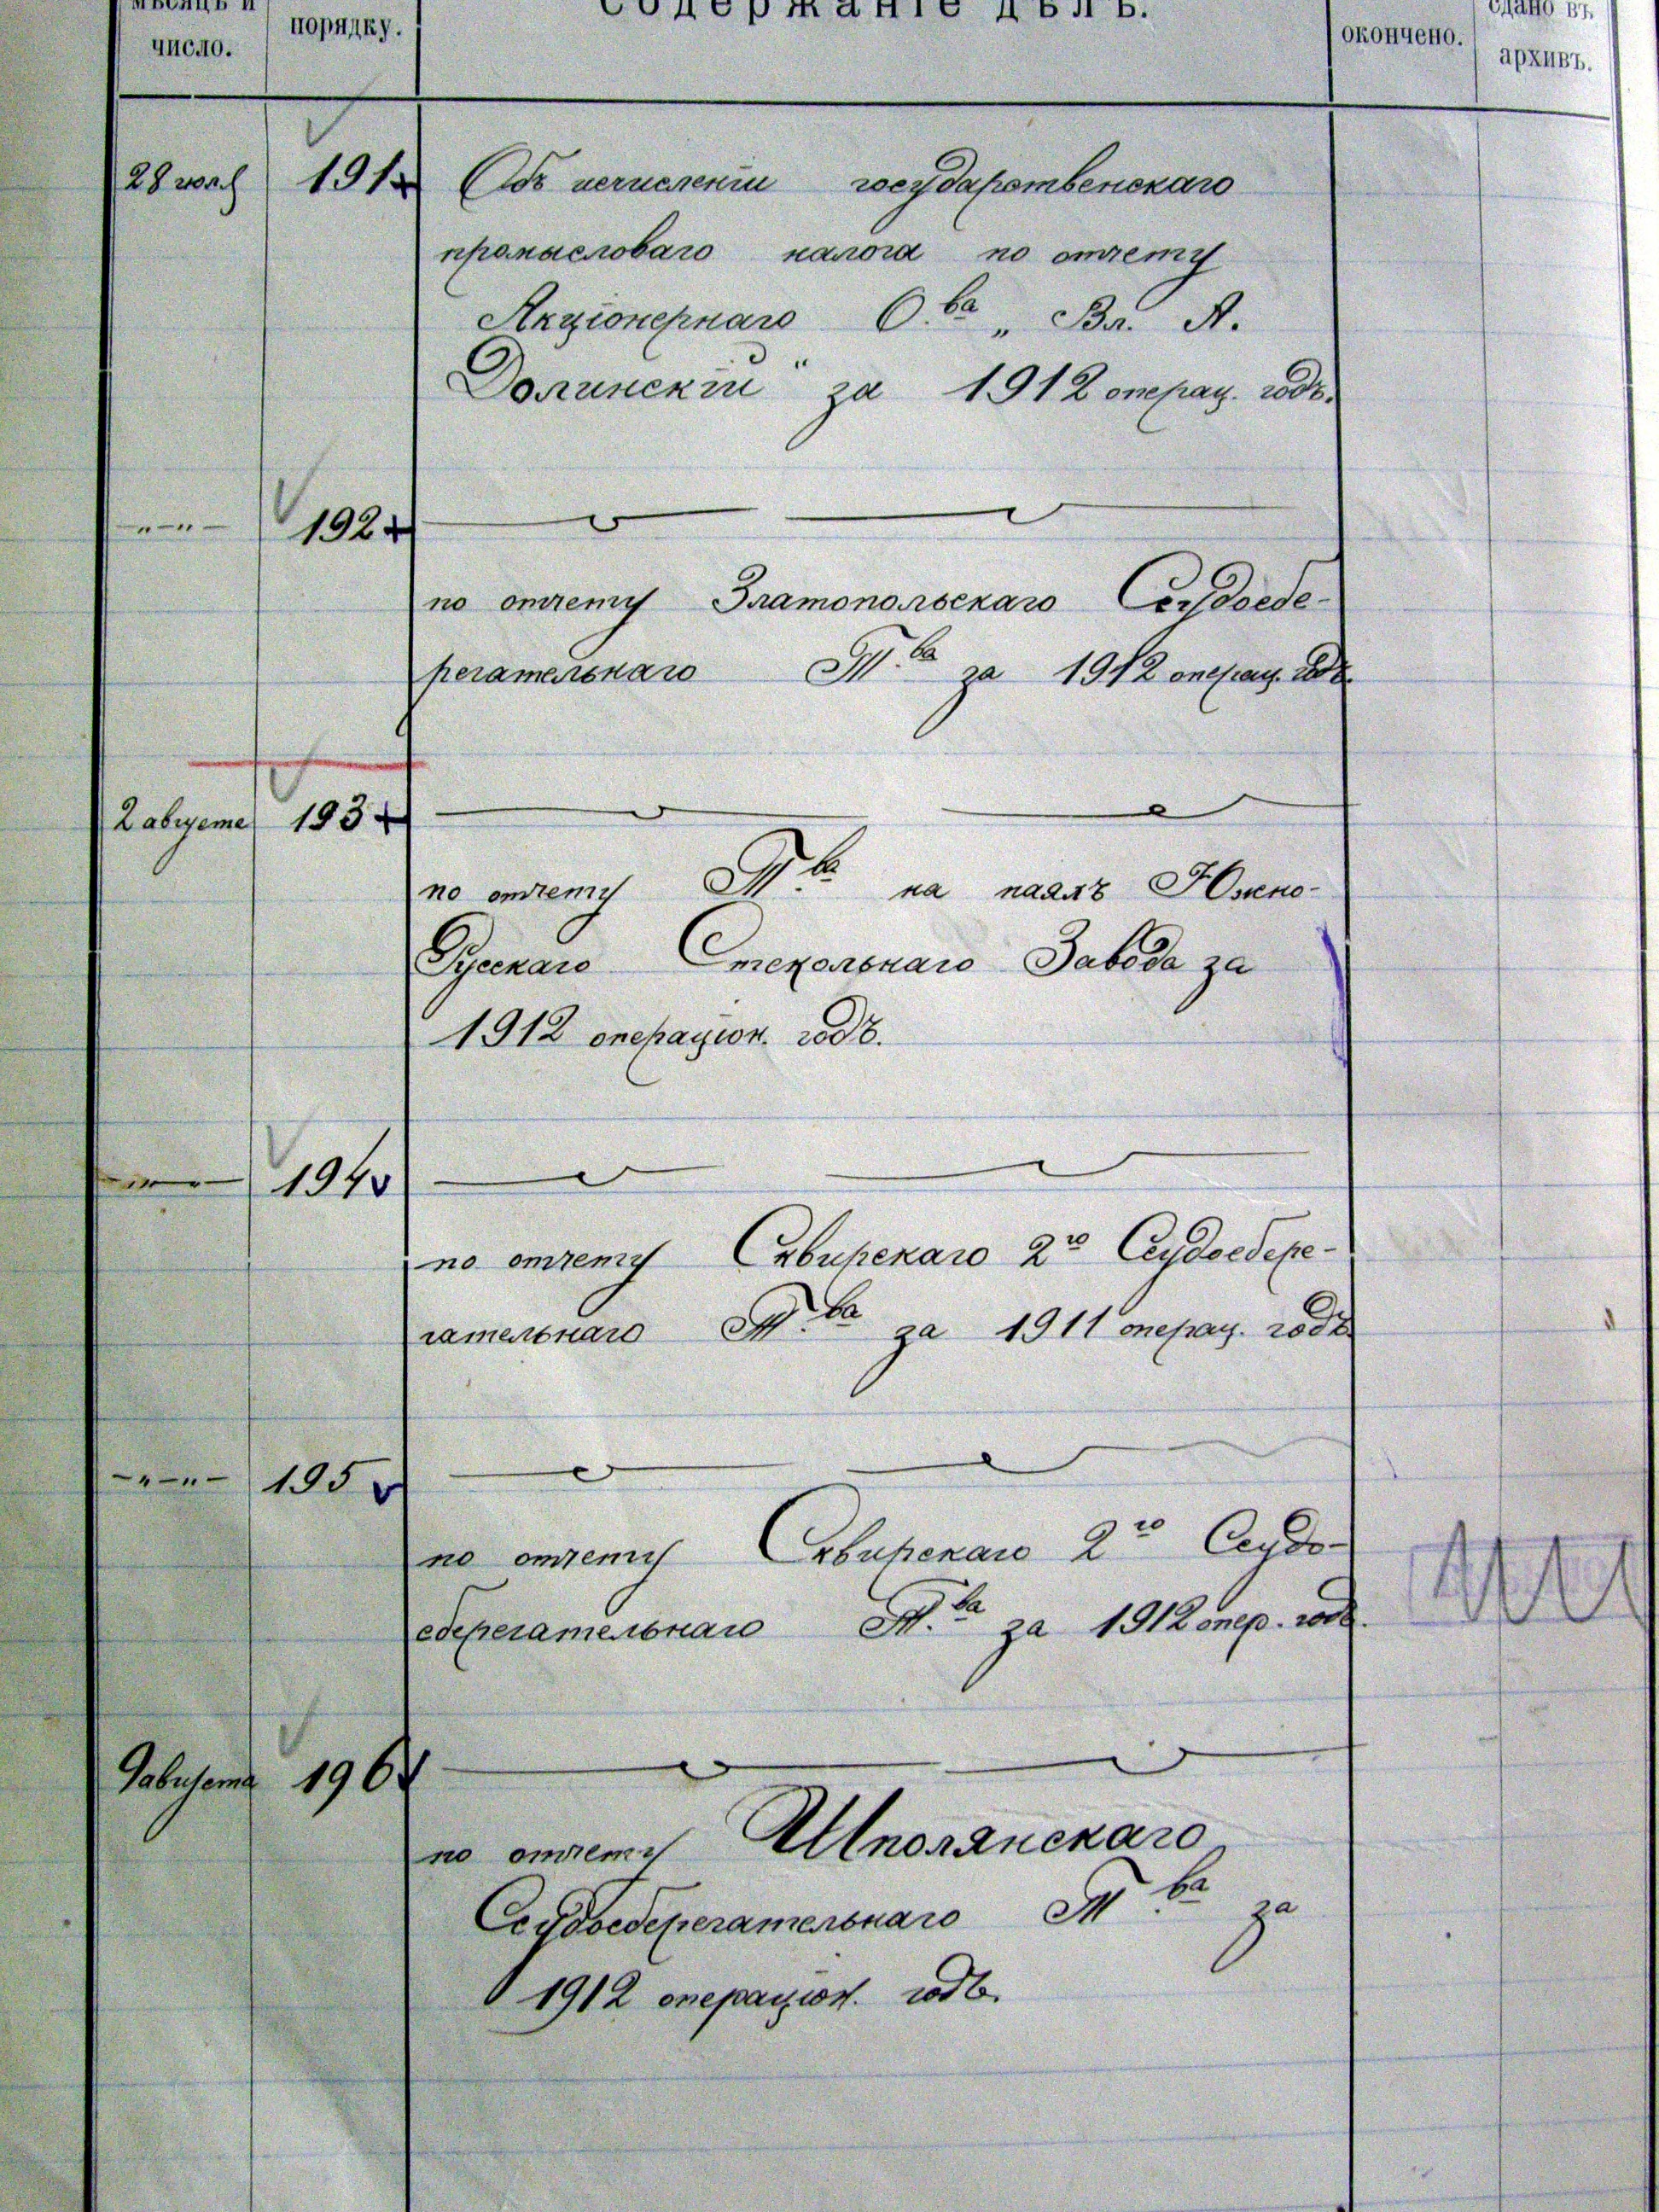 мѣсяцъ и
число.
порядку.
Содержаніе дѣлъ.
окончено.
сдано въ
архивъ.
28 июля 191 Объ исчисленіи государственскаго
промысловаго налога по отчету
Акціонернаго О.ва „Вл. А.
Долинскій“ за 1912 операц. годъ.
—„—„— 192
по отчету Златопольскаго Ссудосбе-
регательнаго Т.ва за 1912 операц. годъ.
2 августа 193
по отчету Т.ва на паяхъ Южно-
Русскаго Стекольнаго Завода за
1912 операціон. годъ.
—„—„— 194
по отчету Сквирскаго 2го Ссудосбере-
гательнаго Т.ва за 1911 операц. годъ
—„—„— 195
по отчету Сквирскаго 2го Ссудо-
сберегательнаго Т.ва за 1912 опер. годъ.
9 августа 196
по отчету Шполянскаго
Ссудосберегательнаго Т.ва за
1912 операціон. годъ.